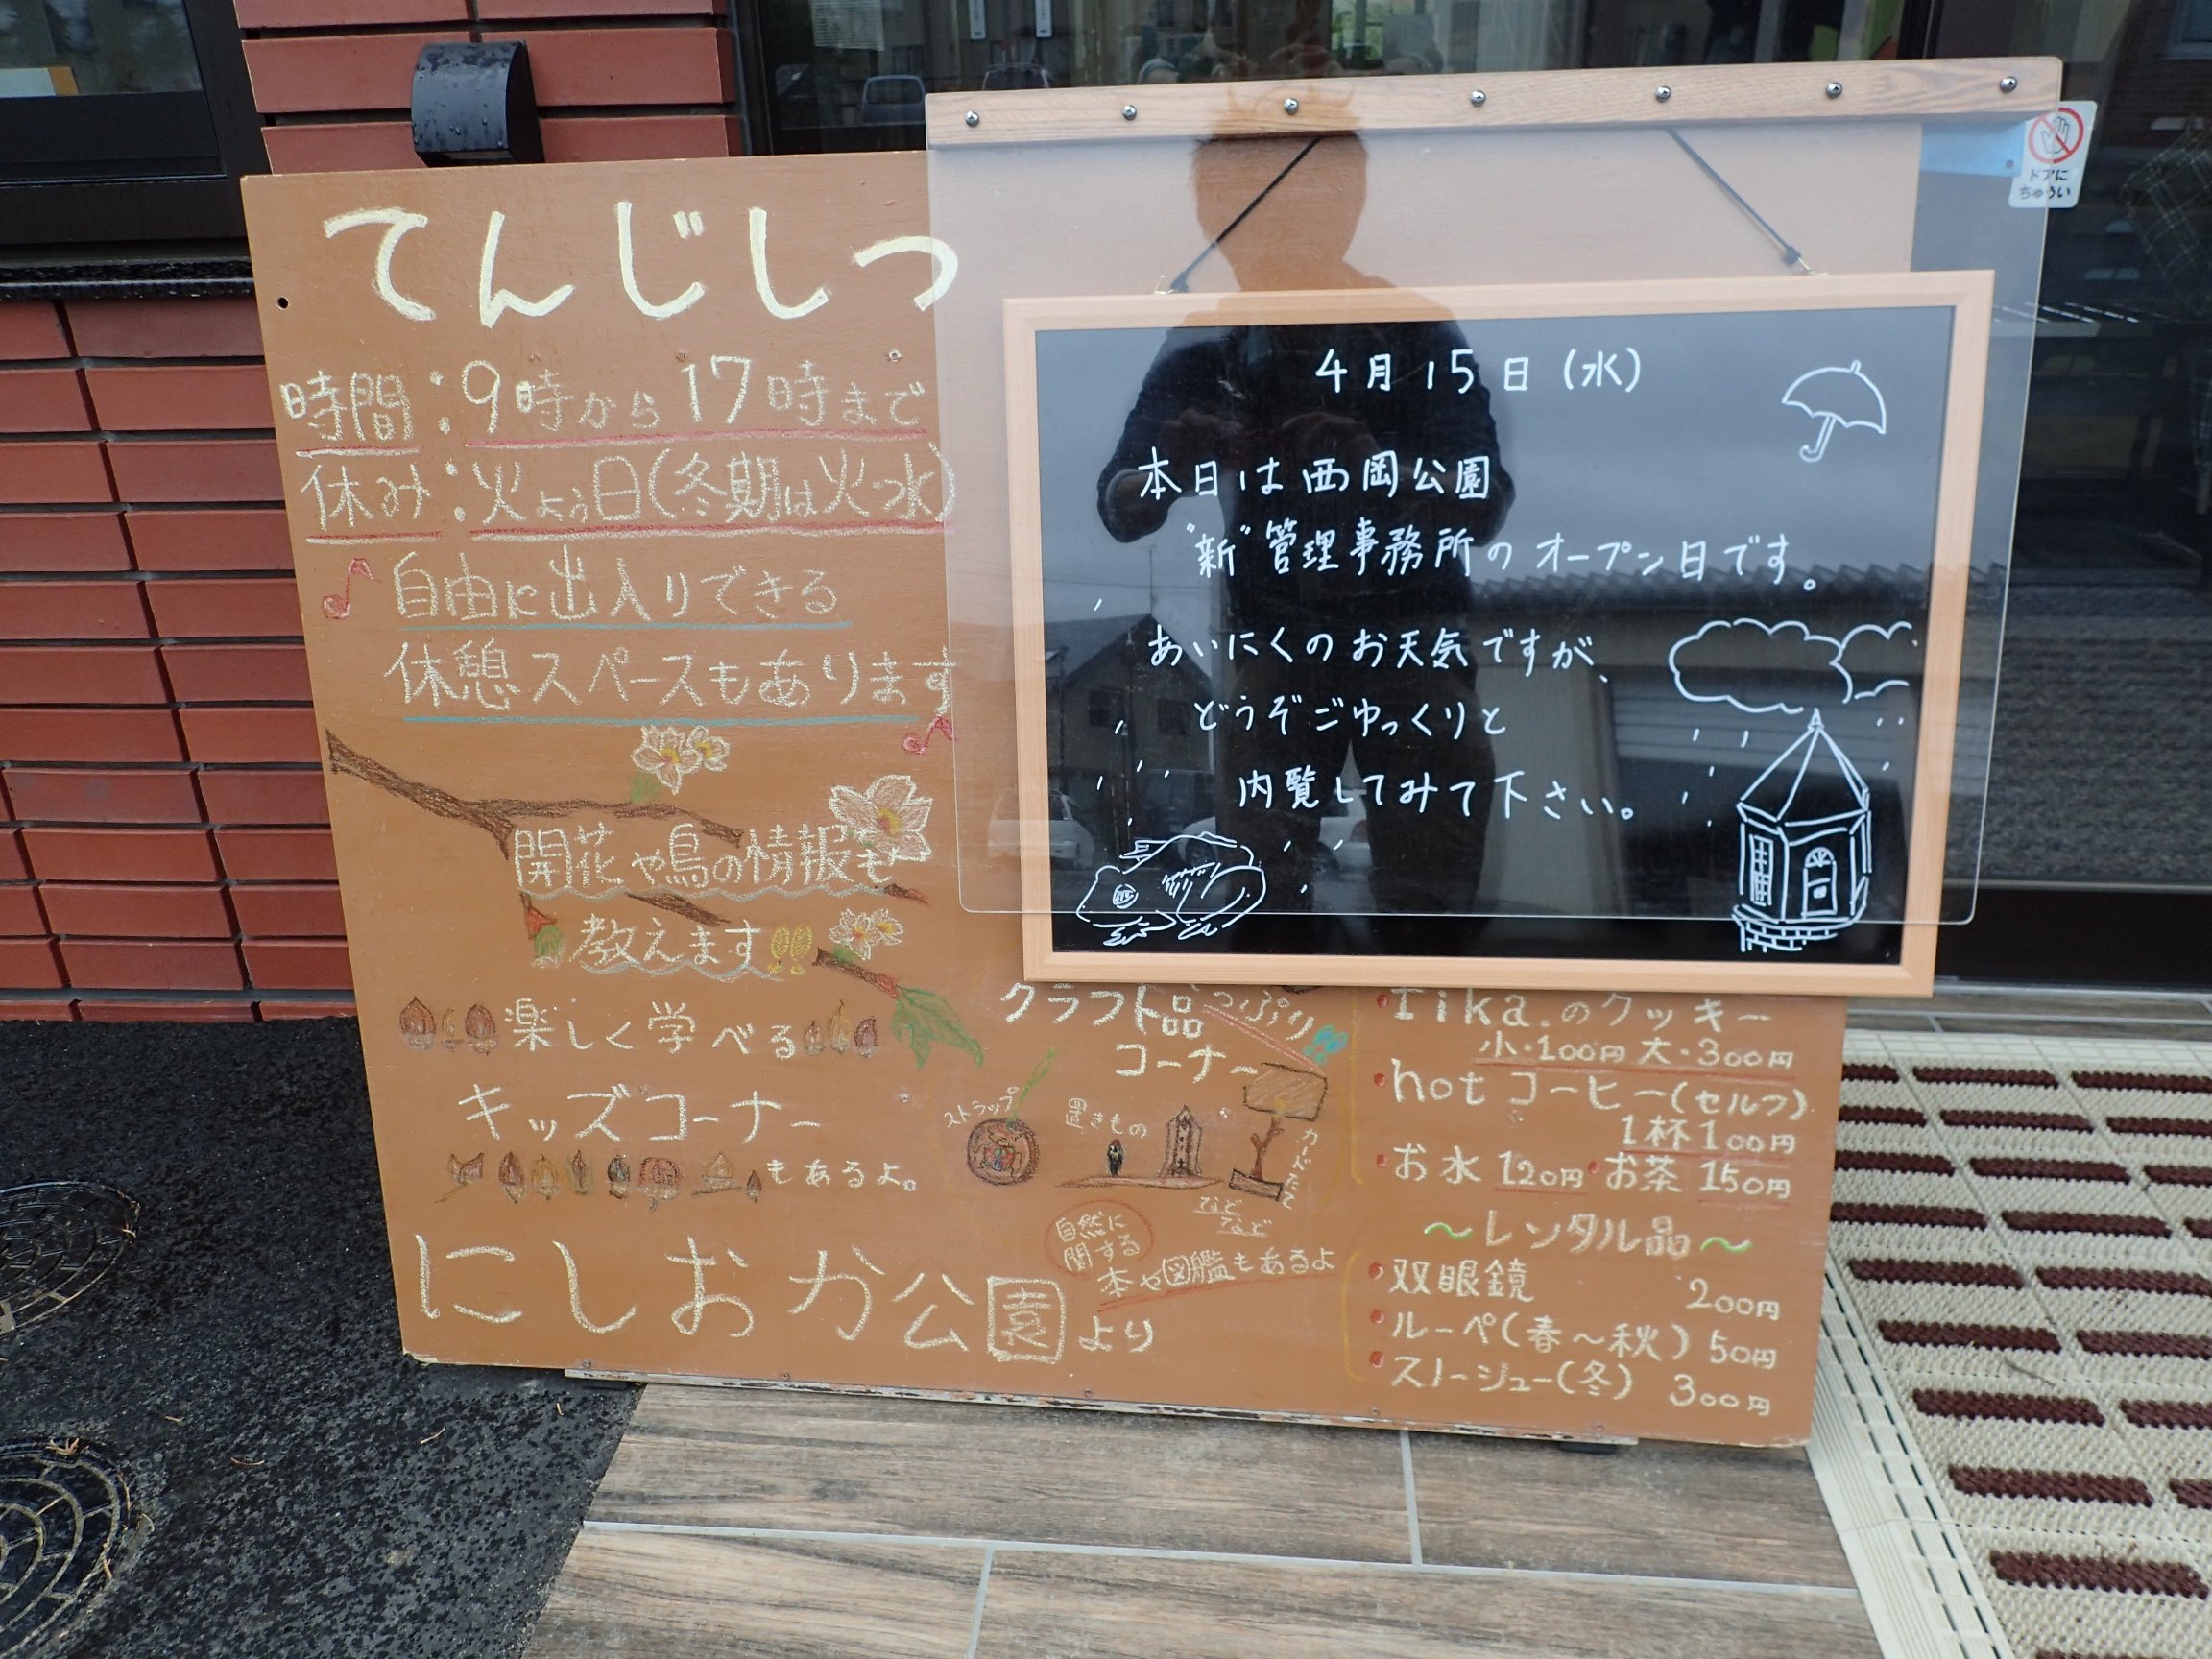 てんじしつ
時間:9時から17時まで
休み:火よう日(冬期は火水)
自由に出入りできる
休憩スペースもあります
開花や鳥の情報も
教えます!!
楽しく学べる
キッズコーナー
もあるよ。
にしおか公園より
クラフト品
コーナー
ストラップ
置きもの
カードたて
などなど
自然に
関する
本や図鑑もあるよ
rika.のクッキー
小・100円 大・300円
hot コーヒー(セルフ)
1杯100円
お水 120円 お茶 150円
~レンタル品~
双眼鏡 200円
ルーペ(春~秋) 50円
スノーシュー(冬) 300円
4月15日(水)
本日は西岡公園
"新"管理事務所のオープン日です。
あいにくのお天気ですが、
どうぞごゆっくりと
内覧してみて下さい。
ドアに
ちゅうい